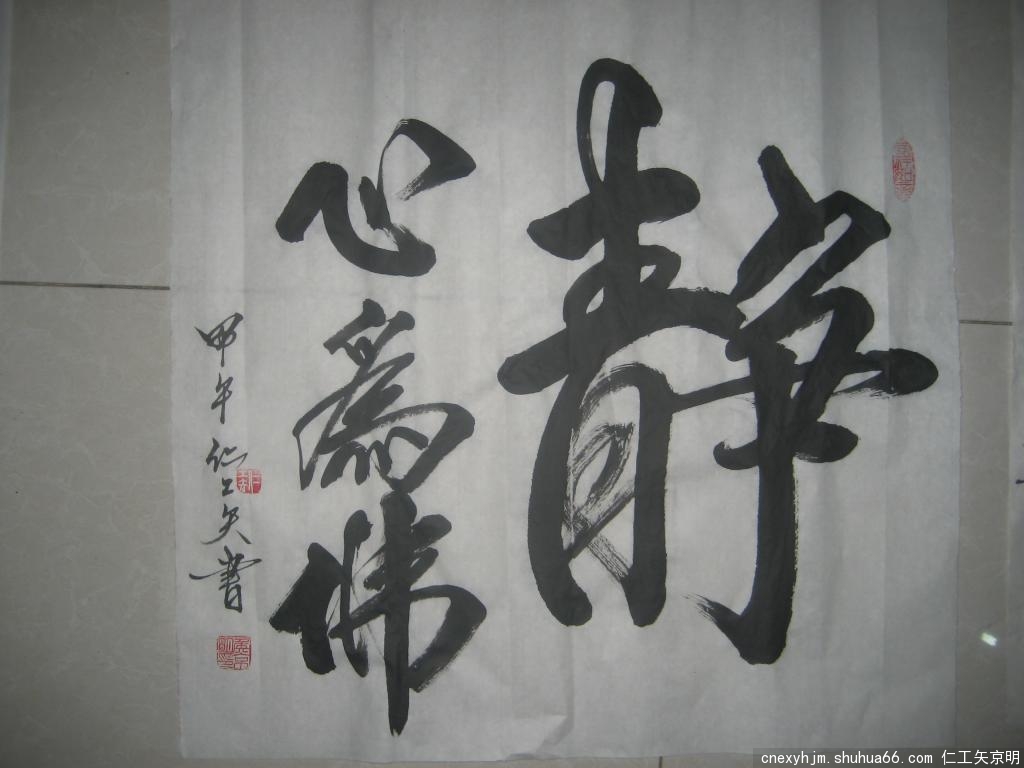 靜
心為佛
甲午仁工矢書
cnexyhjm.shuhua66.com 仁工矢京明